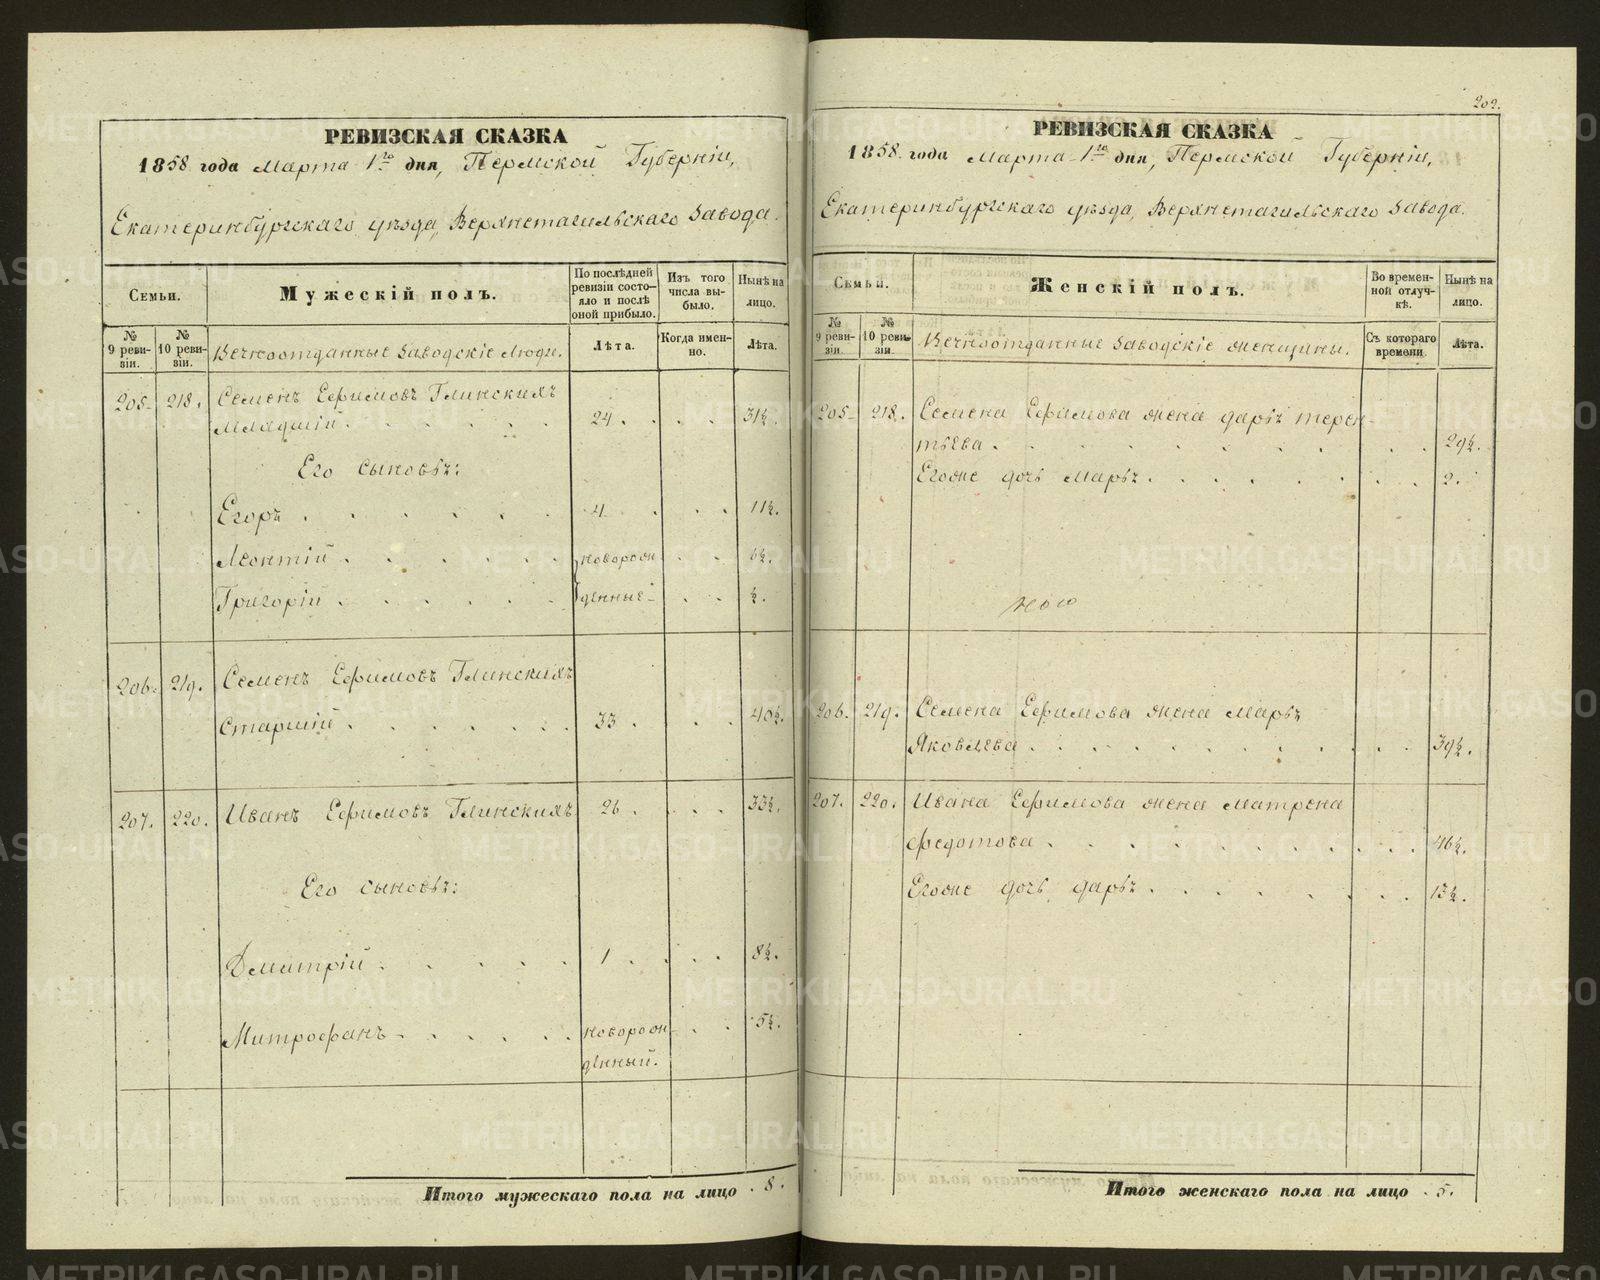 РЕВИЗСКАЯ СКАЗКА
1858 года Марта 1го дня, Пермской Губерніи,
Екатеринбургскаго уѣзда, Верхнетагильскаго Завода.
Семьи.
Мужескій полъ.
По послѣдней ревизіи состояло и послѣ оной прибыло.
Изъ того числа выбыло.
Нынѣ на лицо.
№ 9 ревизіи.
№ 10 ревизіи.
Вечноотданные Заводскіе Люди.
Лѣта.
Когда именно.
Лѣта.
205. 218. Семенъ Ефимовъ Глинскихъ
Младшій. 24. 31½.
Его сыновья:
Егоръ 4 11½.
Леонтій новорож 6½.
Григорій денные ½.
206. 219. Семенъ Ефимовъ Глинскихъ
Старшій. 33. 40½.
207. 220. Иванъ Ефимовъ Глинскихъ 26. 33½.
Его сыновья:
Дмитрій. 1 8½.
Митрофанъ новорож- 5½.
денный.
Итого мужескаго пола на лицо 8.
202.
РЕВИЗСКАЯ СКАЗКА
1858 года Марта 1го дня, Пермской Губерніи,
Екатеринбургскаго уѣзда, Верхнетагильскаго Завода.
Семьи.
Женскій полъ.
Во временной отлучкѣ.
Нынѣ на лицо.
№ 9 ревизіи.
№ 10 ревизіи.
Вечноотданные Заводскіе женщины.
Съ котораго времени.
Лѣта.
205. 218. Семена Ефимова жена Дарья Терен-
тьева. 29½.
Егоже дочь Марья. 2.
206. 219. Семена Ефимова жена Марья
Яковлева. 39½.
207. 220. Ивана Ефимова жена Матрена
Федотова. 46½.
Егоже дочь Дарья. 13½.
Итого женскаго пола на лицо 5.
METRIKI.GASO-URAL.RU